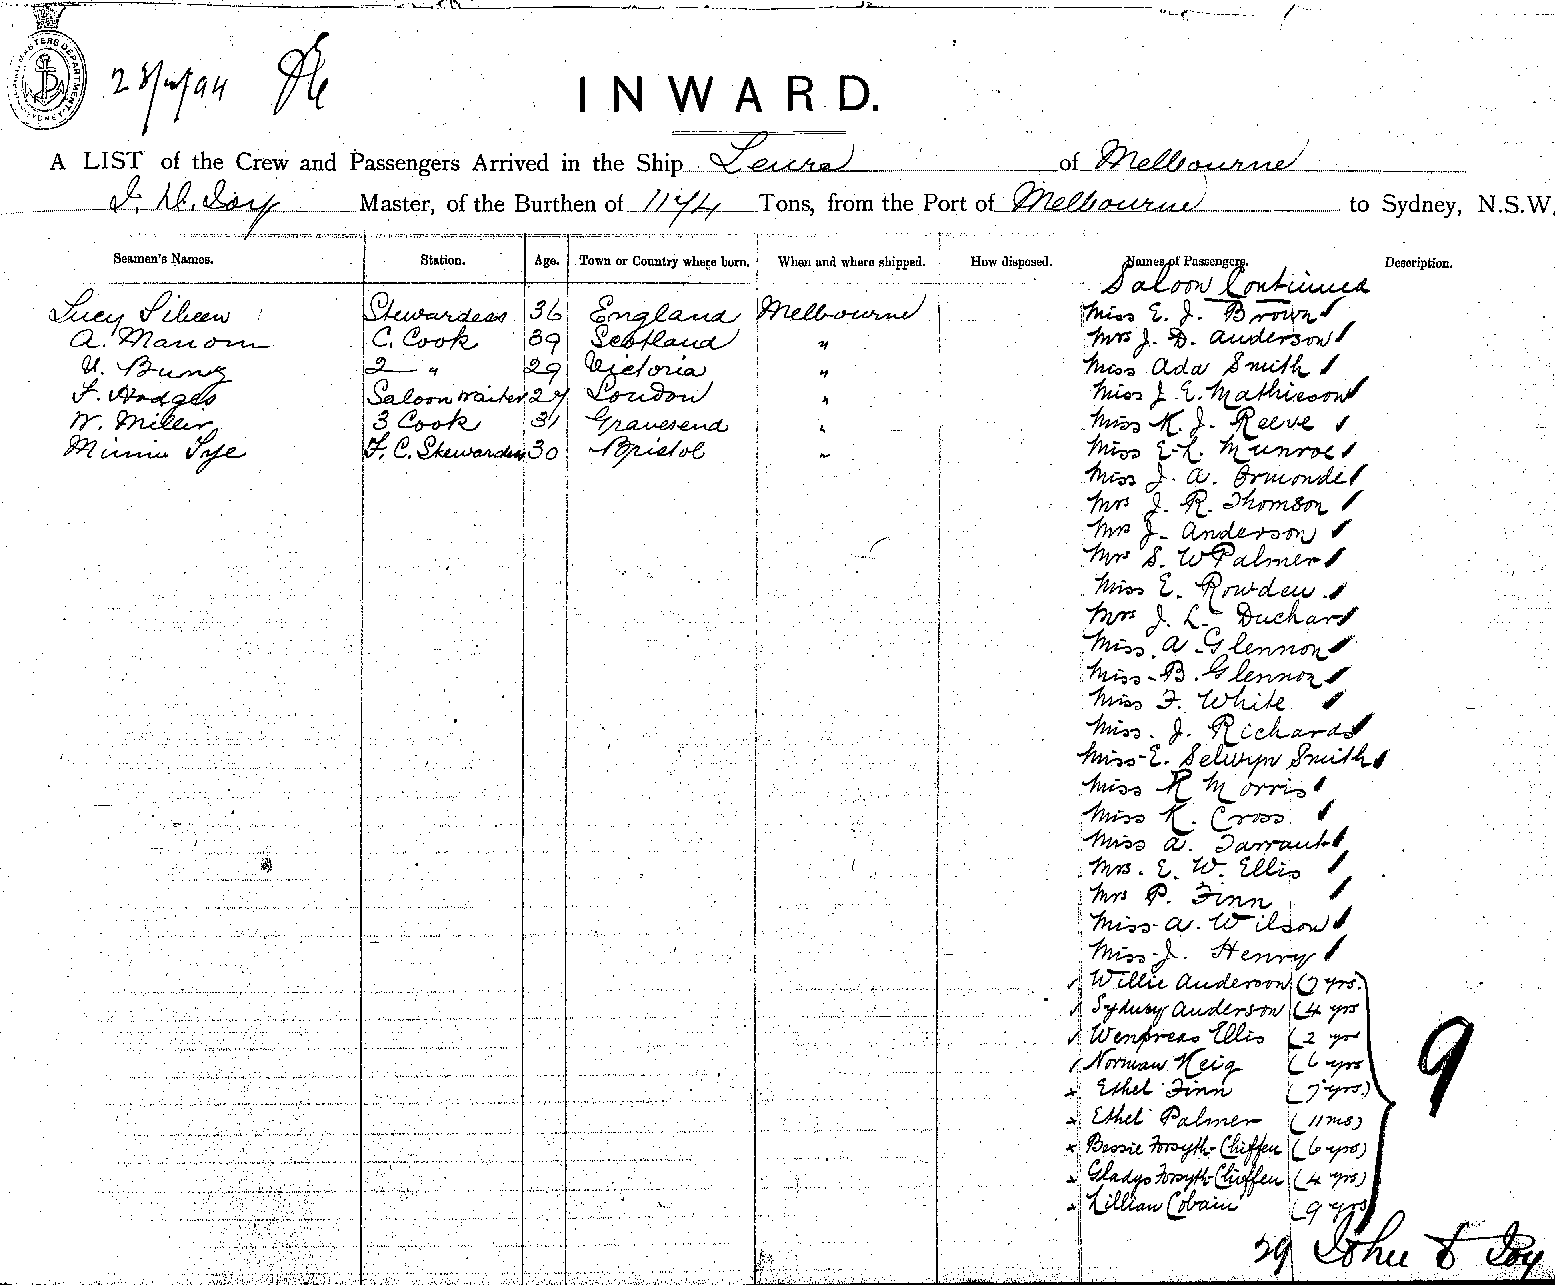 MASTERS DEPARTMENT
SYDNEY
INWARD.
A LIST of the Crew and Passengers Arrived in the Ship Leura of Melbourne
Master, of the Burthen of 1174 Tons, from the Port of Melbourne to Sydney, N.S.W.
Seamen's Names. Station. Age. Town or Country where born. When and where shipped. How disposed. Names of Passengers. Description.
Saloon Continued
Lucy Stewardess 36 England Melbourne Miss E. J. Brown
A. C. Cook 39 Scotland " Mrs J. D. Anderson
2 " 29 Victoria " Miss Ada Smith
F. Hodges Saloon Waiter 27 London " Miss J. E. Mathieson
W. Miller 3 Cook 31 Gravesend " Miss K. J. Reeve
Minnie F. C. Stewardess 30 Bristol " Miss E. L. Munroe
Miss J. A. Ormonde
Mrs J. R. Thomson
Mrs J. Anderson
Mrs S. W Palmer
Miss E. Rowden
Mrs J. L. Duchard
Miss A Glennon
Miss B. Glennon
Miss F. White
Miss. J. Richards
Miss E. Selwyn Smith
Miss R Morris
Miss K. Cross
Miss A. Tarrant
Mrs. E. W. Ellis
Mrs P. Finn
Miss A. Wilson
Miss J. Henry
Willie Anderson (7 yrs.
Sydney Anderson (4 yrs
Ellis (2 yr
Norman Keig (6 yrs
Ethel Finn (7 yrs.)
Ethel Palmer (11 ms)
Bessie Forsyth-Chiffen (6 yrs)
Gladys Forsyth-Chiffen (4 yrs)
Lillian Cobain (9 yrs
9
29 John